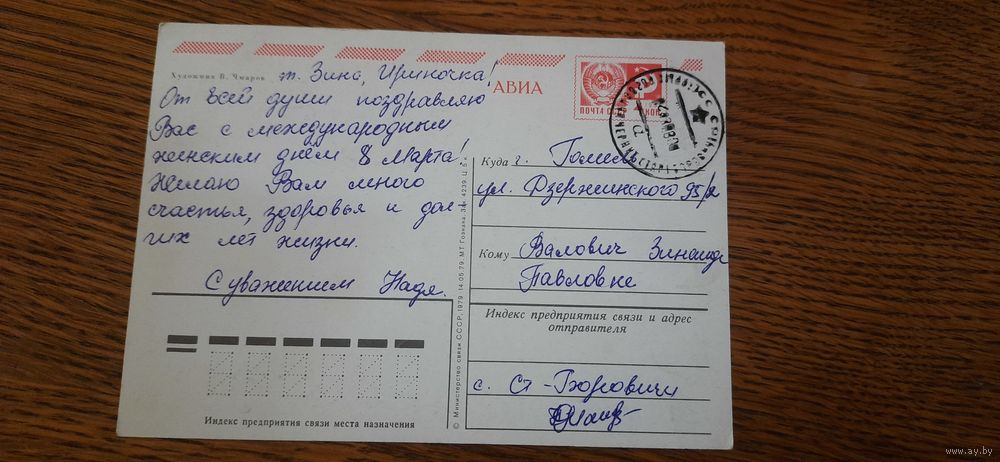 Художник В. Чмаров
т. Зина, Ириночка!
От всей души поздравляю
Вас с международным
женским днём 8 Марта!
Желаю Вам много
счастья, здоровья и дол-
гих лет жизни.
С уважением Надя.
Индекс предприятия связи места назначения
© Министерство связи СССР, 1979. 14.05.79. МТ Гознака. Зак. 4239. Ц. 5 к.
АВИА
ПОЧТА
Куда г. Гомель
ул. Дзержинского
Кому Валович Зинаиде
Павловне
Индекс предприятия связи и адрес
отправителя
с. Ст-Боровичи
www.ay.by